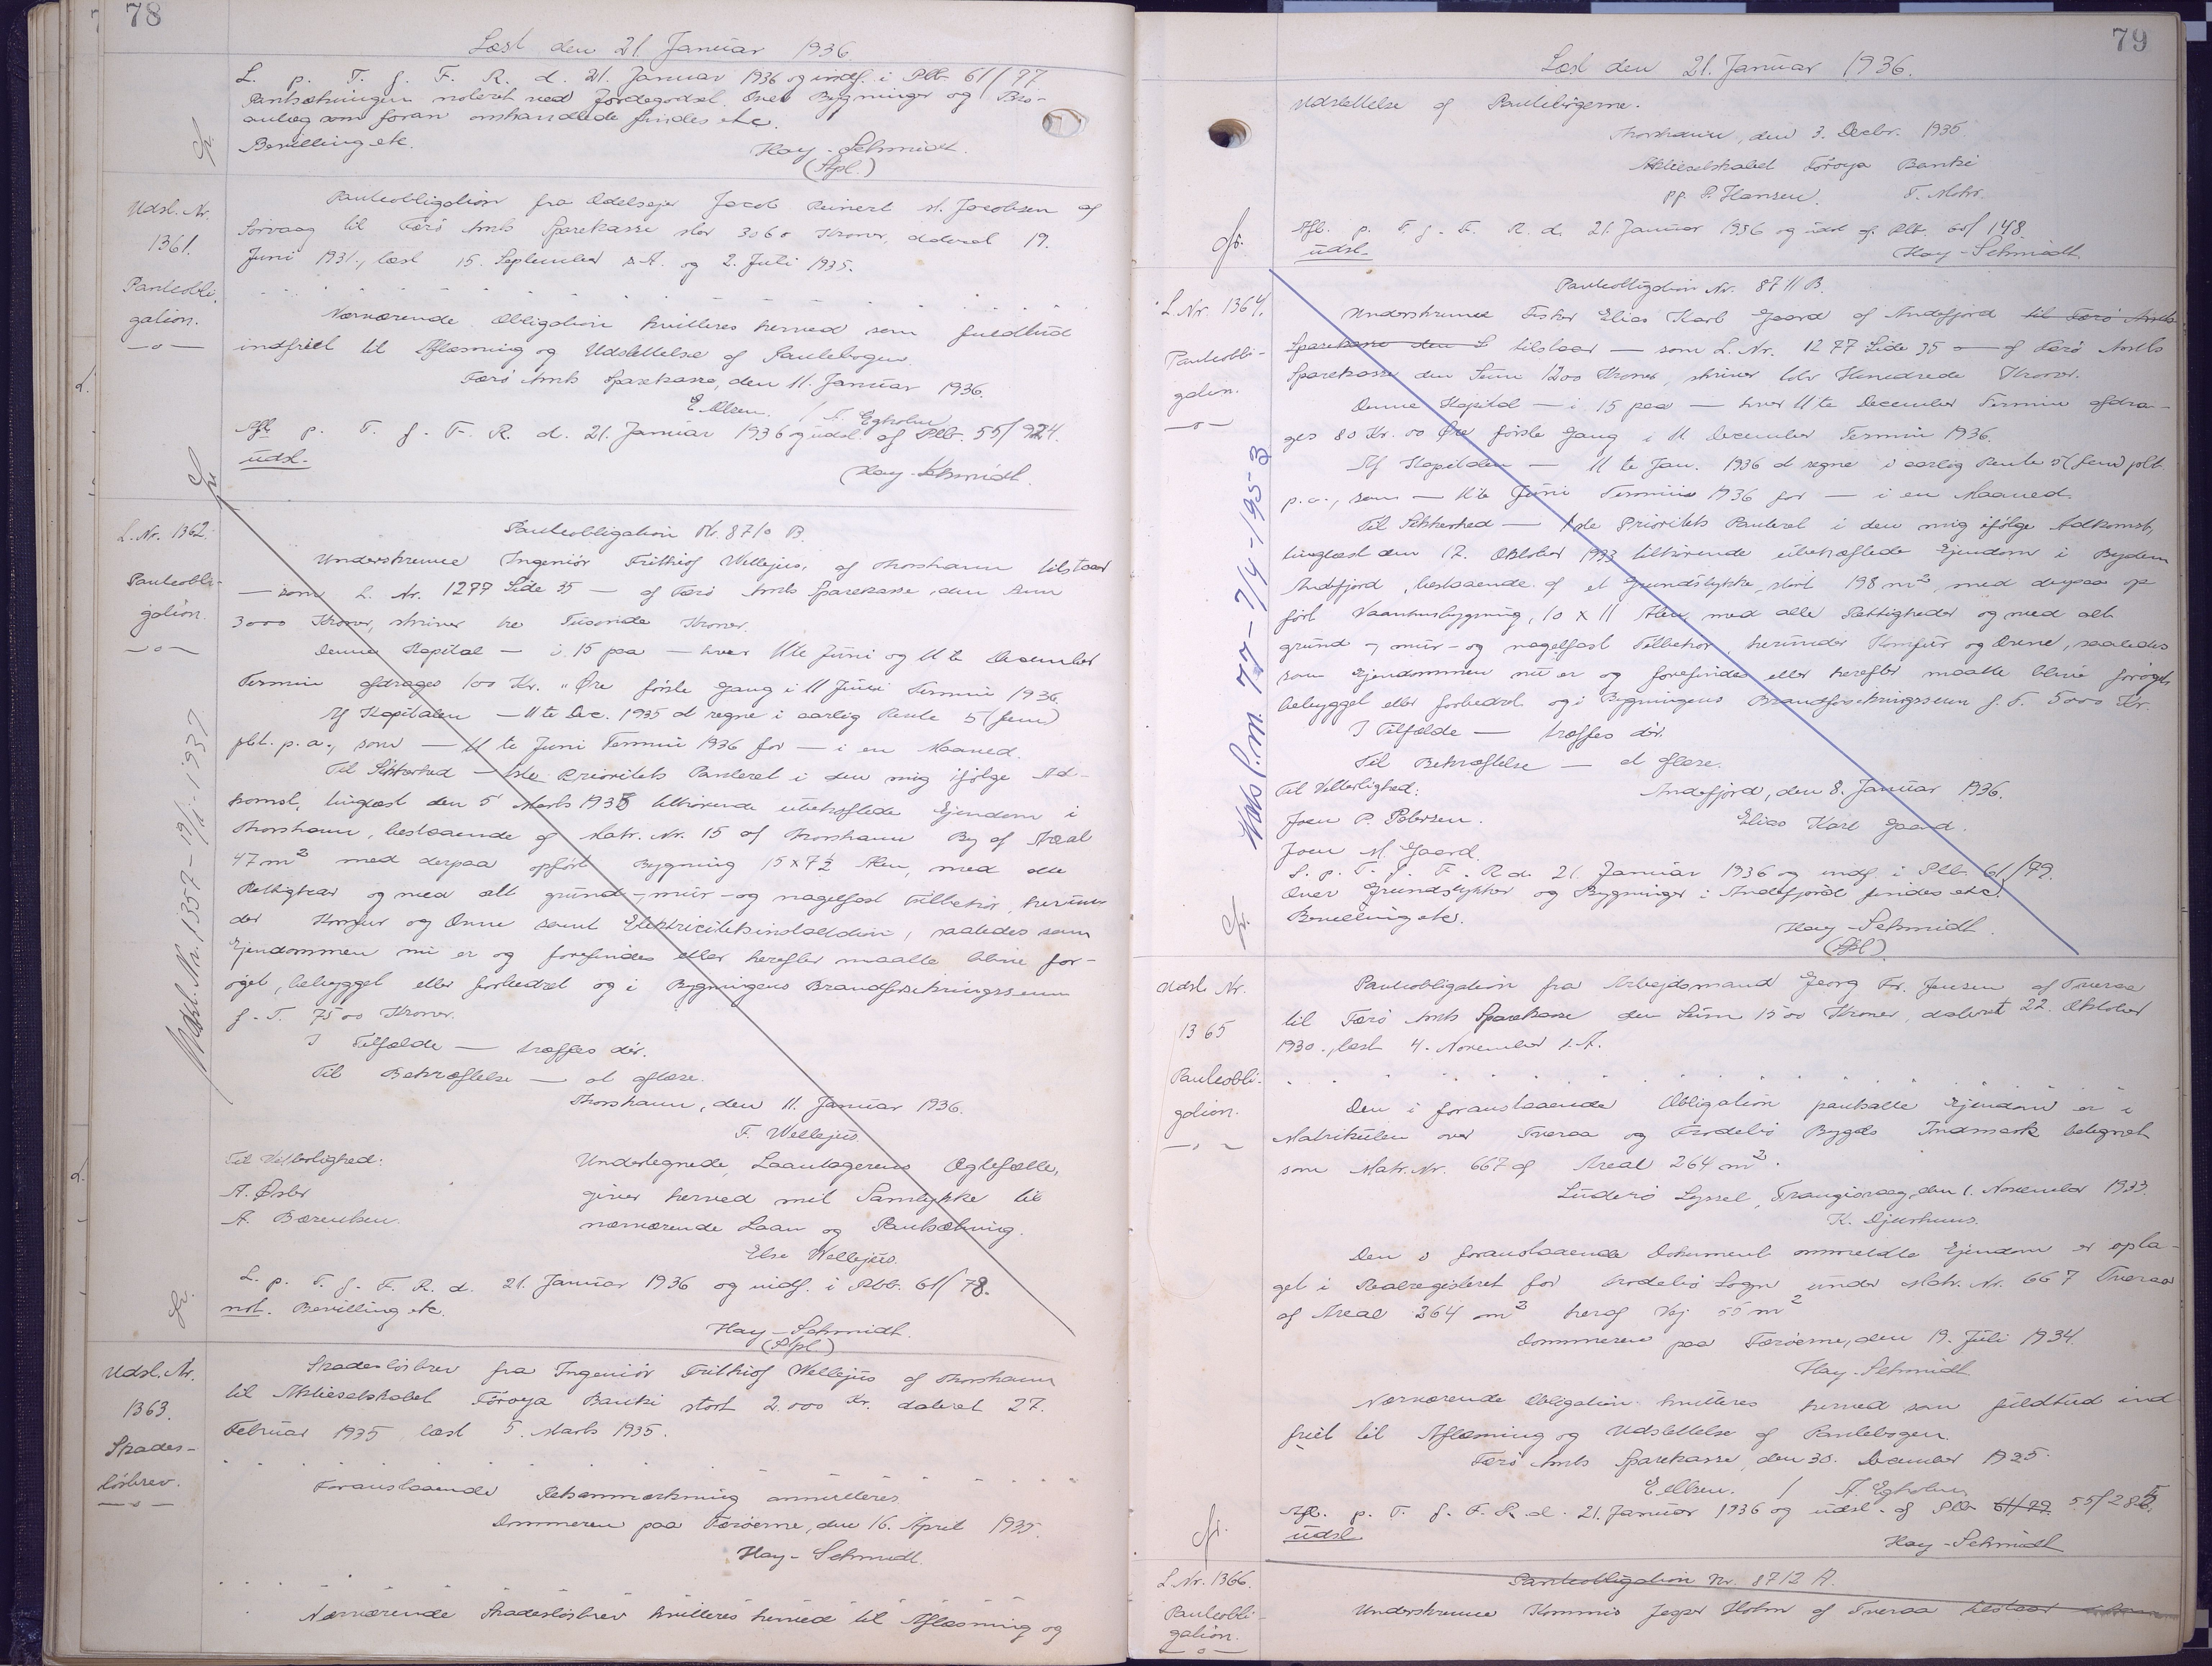 78
Læst den 21. Januar 1936
L. p. T. f. F. R. d. 21. Januar 1936 og indf. i Pltb. 61/77
Pantsætningen noteret ved Jordegodset. Over Bygninger og Bro-
anlæg som foran omhandlede findes etc.
Bevilling etc.
Hay-Schmidt.
(Stpl.)
Udsl. Nr.
1361.
Panteobli-
gation.
Panteobligation fra Odelsejer Jacob Reinert M. Jacobsen af
Sørvaag til Færø Amts Sparekasse stor 3060 Kroner, dateret 19.
Juni 1931, læst 15. September s. A. og 2. Juli 1935.
Nærværende Obligation kvitteres herved som fuldtud
indfriet til Aflæsning og Udslettelse af Pantebogen.
Færø Amts Sparekasse, den 11. Januar 1936.
E. Olsen. / N. Egholm
Afl. p. T. f. F. R. d. 21. Januar 1936 og udsl. af Pltb. 55/924.
udsl.
Hay-Schmidt.
L. Nr. 1362.
Panteobli-
gation.
Panteobligation Nr. 8710 B.
Underskrevne Ingeniør Frithiof Wellejus, af Thorshavn tilstaar
— som L. Nr. 1277 Side 35 — af Færø Amts Sparekasse, den Sum
3000 Kroner, skriver tre Tusinde Kroner.
Denne Kapital — i 15 paa — hver 11te Juni og 11te December
Termin afdrages 100 Kr. „ Øre første Gang i 11 Juni Termin 1936.
Af Kapitalen — 11te Dec. 1935 at regne i aarlig Rente 5 (fem)
pCt. p. a., som — 11te Juni Termin 1936 for — i en Maaned.
Til Sikkerhed — 1ste Prioritets Panteret i den mig ifølge Ad-
komst, tinglæst den 5 Marts 1935 tilhørende ubehæftede Ejendom i
Thorshavn, bestaaende af Matr. Nr. 15 af Thorshavn By af Areal
47 m² med derpaa opført Bygning 15 x 7½ Alen, med alle
Rettigheder og med alt grund-, mur- og nagelfast Tilbehør, herun-
der Komfur og Ovne samt Elektricitetsinstallation, saaledes som
Ejendommen nu er og forefindes eller herefter maatte blive for-
øget, bebygget eller forbedret og i Bygningens Brandforsikringssum
f. T. 7500 Kroner.
I Tilfælde — træffes dér.
Til Bekræftelse — at aflæse.
Thorshavn, den 11. Januar 1936.
F. Wellejus
Til Vitterlighed:
A. Øster
A. Bærentsen.
Undertegnede, Laantagerens Ægtefælle,
giver herved mit Samtykke til
nærværende Laan og Pantsætning.
Else Wellejus.
L. p. T. f. F. R. d. 21. Januar 1936 og indf. i Pltb. 61/78.
not. Bevilling etc.
Hay-Schmidt.
(Stpl)
Udsl. Nr. 1357 - 19/1-1937
Udsl. Nr.
1363.
Skades-
løsbrev.
Skadesløsbrev fra Ingeniør Frithiof Wellejus af Thorshavn
til Aktieselskabet Föroya Banki stort 2.000 Kr. dateret 27.
Februar 1935 læst 5. Marts 1935.
Foranstaaende Retsanmærkning annulleres.
Dommeren paa Færøerne, den 16. April 1935.
Hay-Schmidt.
Nærværende Skadesløsbrev kvitteres herved til Aflæsning og
79
Læst den 21. Januar 1936.
Udslettelse af Pantebøgerne.
Thorshavn, den 3. Decbr. 1935.
Aktieselskabet Föroya Banki
pp. P. Hansen. T. Mohr.
Afl. p. T. f. F. R. d. 21. Januar 1936 og udsl. af Pltb. 60/148
udsl.
Hay-Schmidt.
L. Nr. 1364.
Panteobli-
gation.
Panteobligation Nr. 8711 B.
Underskrevne Fisker Elias Karl Gaard af Andefjord til Færø Amts
Sparekasse den S tilstaar — som L. Nr. 1277 Side 35 — af Færø Amts
Sparekasse den Sum 1200 Kroner, skriver tolv Hundrede Kroner.
Denne Kapital — i 15 paa — hver 11te December Termin afdra-
ges 80 Kr. 00 Øre første Gang i 11 December Termin 1936.
Af Kapitalen — 11te Jan. 1936 at regne i aarlig Rente 5 (fem) pCt.
p. a., som — 11te Juni Termin 1936 for — i en Maaned.
Til Sikkerhed — 1ste Prioritets Panteret i den mig ifølge Adkomst,
tinglæst den 17. Oktober 1933 tilhørende ubehæftede Ejendom i Bygden
Andefjord, bestaaende af et Grundstykke, stort 198 m², med derpaa op-
ført Vaaningsbygning, 10 x 11 Alen med alle Rettigheder og med alt
grund-, mur- og nagelfast Tilbehør, herunder Komfur og Ovne, saaledes
som Ejendommen nu er og forefindes eller herefter maatte blive forøget,
bebygget eller forbedret og i Bygningens Brandforsikringssum f. T. 5000 Kr.
I Tilfælde — træffes dér.
Til Bekræftelse — at aflæse.
Til Vitterlighed:
Andefjord, den 8. Januar 1936.
Joen P. Petersen.
Elias Karl Gaard.
Joen M. Gaard.
L. p. T. f. F. R. d. 21 Januar 1936 og indf. i Pltb. 61/79.
Over Grundstykker og Bygninger i Andefjord findes etc.
Bevilling etc.
Hay-Schmidt.
(Stpl)
Uds. l. nr. 77 - 7/4-1953
Udsl. Nr.
1365
Panteobli-
gation.
Panteobligation fra Arbejdsmand Georg Fr. Jensen af Tveraa
til Færø Amts Sparekasse den Sum 1500 Kroner, dateret 22. Oktober
1930, læst 4. November s. A.
Den i foranstaaende Obligation pantsatte Ejendom er i
Matrikulen over Tveraa og Frodebø Bygds Indmark betegnet
som Matr. Nr. 667 af Areal 264 m².
Suderø Syssel, Trangisvaag, den 1. November 1933.
K. Djurhuus.
Den i foranstaaende Dokument ommeldte Ejendom er opta-
get i Realregisteret for Frodebø Sogn under Matr. Nr. 667 Tveraa
af Areal 264 m² heraf Vej 55 m²
Dommeren paa Færøerne, den 19. Juli 1934.
Hay-Schmidt
Nærværende Obligation kvitteres herved som fuldtud ind-
friet til Aflæsning og Udslettelse af Pantebogen.
Færø Amts Sparekasse, den 30. December 1935.
E. Olsen. / N. Egholm
Afl. p. T. f. F. R. d. 21. Januar 1936 og udsl. af Pltb. 61/79 55/285.
udsl.
Hay-Schmidt
L. Nr. 1366.
Panteobli-
gation.
Panteobligation Nr. 8712 A.
Underskrevne Kommis Jesper Holm af Tveraa tilstaar